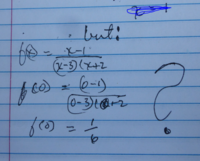 but!
f(x) = x-1 / (x-3)(x+2
f(0) = (0-1) / (0-3)(0+2
f(0) = 1/6
?